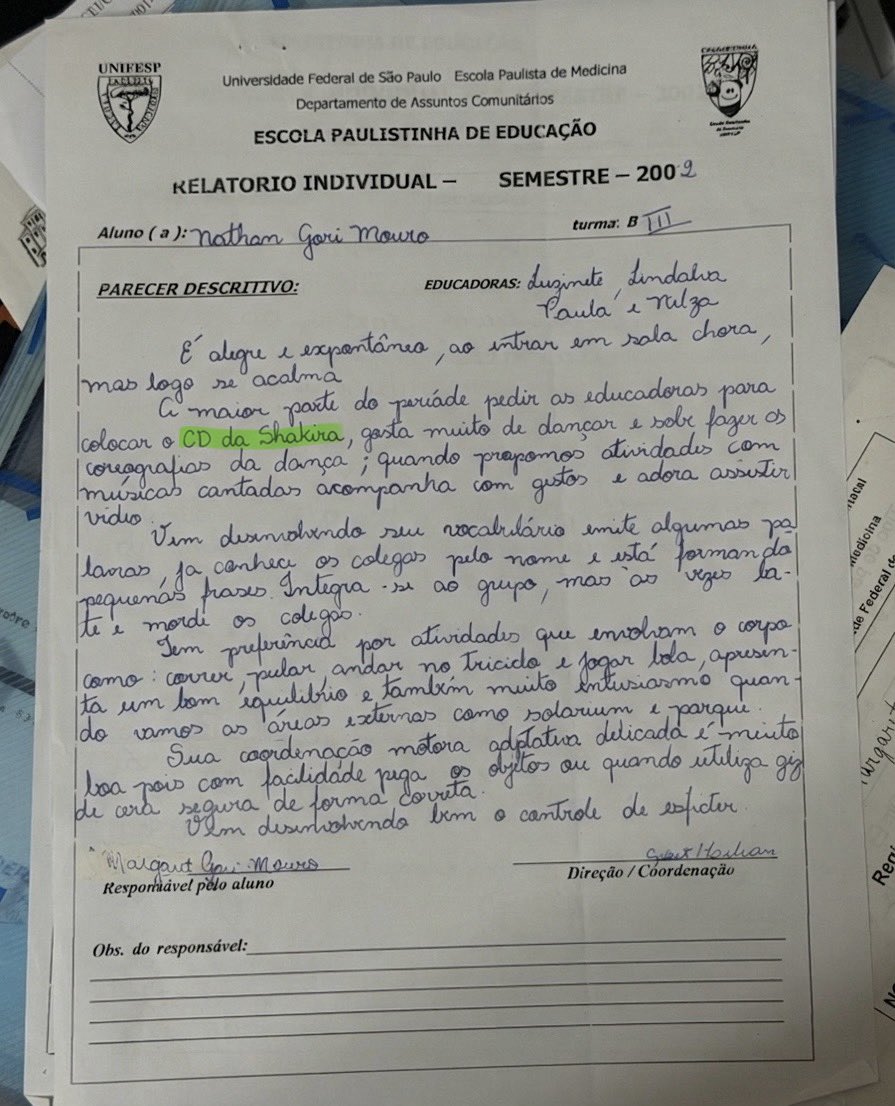 UNIFESP
Universidade Federal de São Paulo Escola Paulista de Medicina
Departamento de Assuntos Comunitários
ESCOLA PAULISTINHA DE EDUCAÇÃO
RELATORIO INDIVIDUAL – SEMESTRE – 2002
Aluno ( a ): Nathan Gori Mouro turma: B III
PARECER DESCRITIVO: EDUCADORAS: Luzinete, Lindalva
Paula e Nilza
É alegre e expontâneo, ao entrar em sala chora,
mas logo se acalma
A maior parte do períade pedir as educadoras para
colocar o CD da Shakira, gosta muito de dançar e sabe fazer as
coreografias da dança; quando propomos atividades com
músicas cantadas acompanha com gestos e adora assistir
vídio.
Vem desenvolvendo seu vocabulário emite algumas pa
lavras, ja conhece os colegas pelo nome e está formando
pequenas frases. Integra-se ao grupo, mas as vezes ba-
te e morde os colegas.
Tem preferência por atividades que envolvam o corpo
como: correr, pular, andar no triciclo e jogar bola, apresen-
ta um bom equilíbrio e também muito entusiasmo quan-
do vamos as áreas externas como solarium e parque.
Sua coordenação motora adptativa delicada é muito
boa pois com facilidade pega os objetos ou quando utiliza giz
de cera segura de forma correta.
Vem desenvolvendo bem o controle de esficter.
Margaret Gori Mouro
Responsável pelo aluno Direção / Coordenação
Obs. do responsável:
Medicina
de Federal de